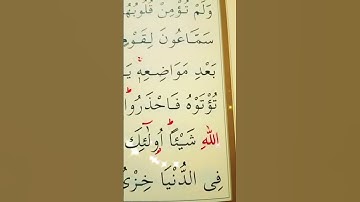 وَلَمْ تُؤْمِنْ قُلُوبُهُ
سَمَّاعُونَ لِقَوْمٍ
بَعْدِ مَوَاضِعِهٖ يَ
تُؤْتَوْهُ فَاحْذَرُوا
اللّٰهِ شَيْئًا اُولٰٓئِكَ
فِي الدُّنْيَا خِزْيٌ